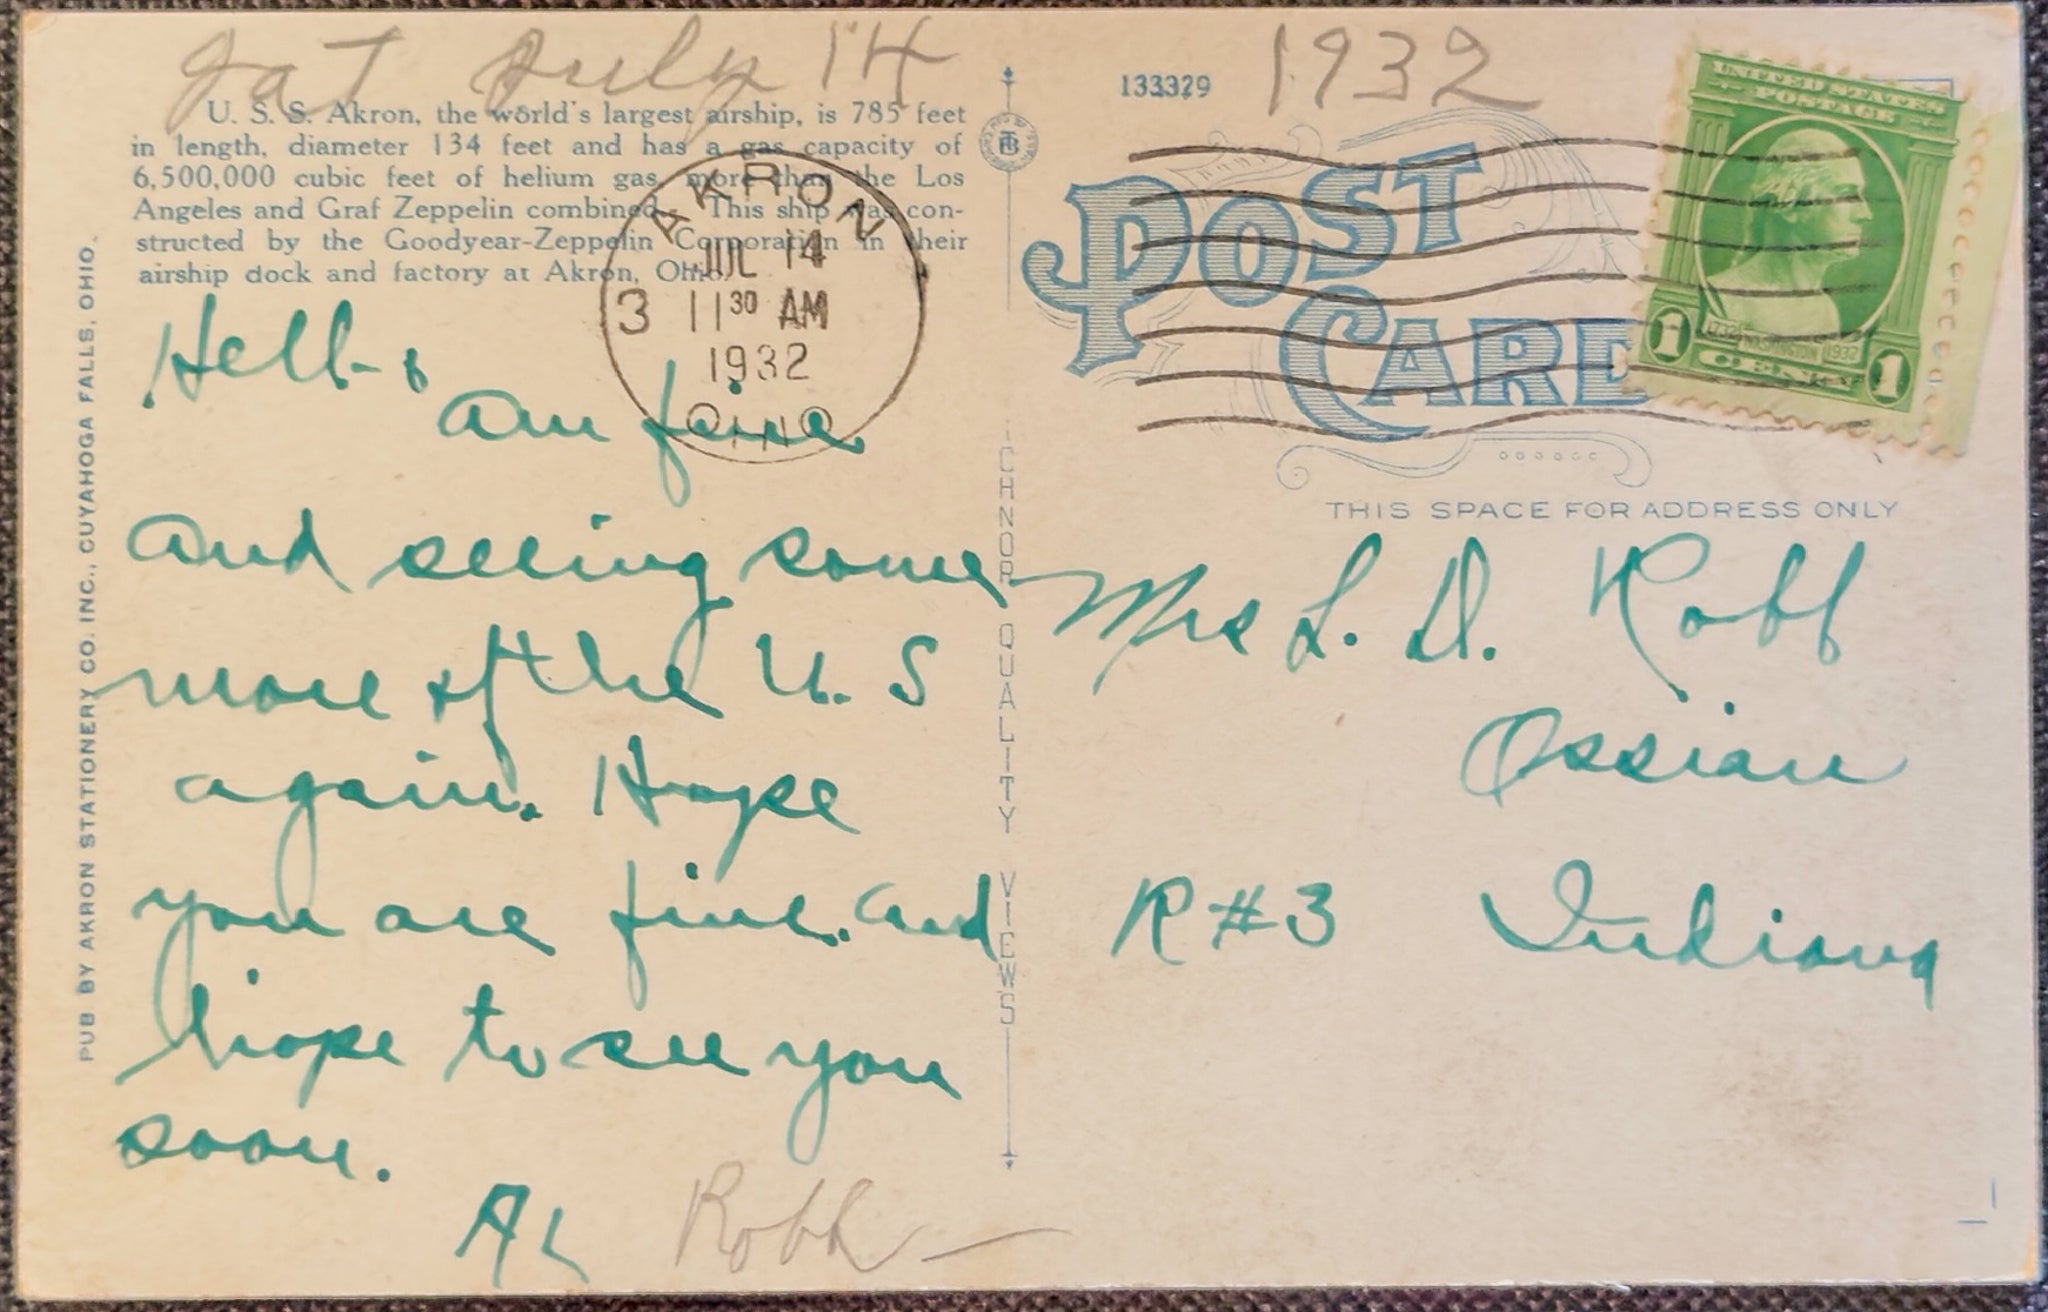 July 14 1932
U. S. S. Akron, the world's largest airship, is 785 feet
in length, diameter 134 feet and has a gas capacity of
6,500,000 cubic feet of helium gas, more than the Los
Angeles and Graf Zeppelin combined. This ship was con-
structed by the Goodyear-Zeppelin Corporation in their
airship dock and factory at Akron, Ohio.
PUB BY AKRON STATIONERY CO. INC., CUYAHOGA FALLS, OHIO.
AKRON
JUL 14
3 11 30 AM
1932
OHIO
Hello
am fine
and seeing some
more of the U. S
again. Hope
you are fine. and
hope to see you
soon.
AL Robb
TICHNOR QUALITY VIEWS
133329
POST
CARD
UNITED STATES
POSTAGE
1732 WASHINGTON 1932
1 CENT 1
THIS SPACE FOR ADDRESS ONLY
Mrs L. D. Robb
Ossian
R#3 Indiana